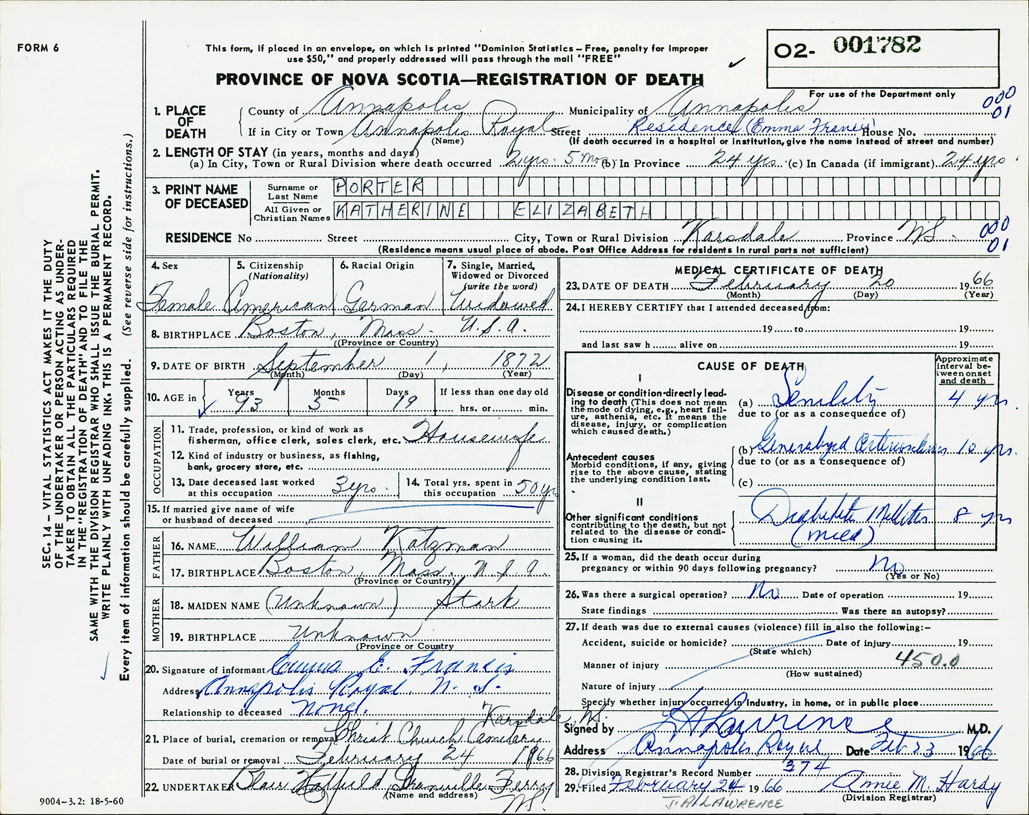 FORM 6
This form, if placed in an envelope, on which is printed "Dominion Statistics – Free, penalty for improper
use $50," and properly addressed will pass through the mail "FREE"
02- 001782
For use of the Department only
PROVINCE OF NOVA SCOTIA—REGISTRATION OF DEATH
1. PLACE OF DEATH
County of Annapolis Municipality of Annapolis
000
01
If in City or Town Annapolis Royal Street Residence (Emma Francis) House No.
(Name) (If death occurred in a hospital or institution, give the name instead of street and number)
2. LENGTH OF STAY (in years, months and days)
(a) In City, Town or Rural Division where death occurred 2 yrs. 5 Mos (b) In Province 24 yrs (c) In Canada (if immigrant) 24 yrs
3. PRINT NAME OF DECEASED
Surname or Last Name PORTER
All Given or Christian Names KATHERINE ELIZABETH
RESIDENCE No Street City, Town or Rural Division Karsdale Province N.S.
000
01
(Residence means usual place of abode. Post Office Address for residents in rural parts not sufficient)
4. Sex
Female
5. Citizenship
(Nationality)
American
6. Racial Origin
German
7. Single, Married, Widowed or Divorced
(write the word)
Widowed
8. BIRTHPLACE Boston, Mass. U.S.A.
(Province or Country)
9. DATE OF BIRTH September 1, 1872
(Month) (Day) (Year)
10. AGE in Years 93 Months 5 Days 19 If less than one day old
hrs. or min.
OCCUPATION
11. Trade, profession, or kind of work as
fisherman, office clerk, sales clerk, etc. Housewife
12. Kind of industry or business, as fishing,
bank, grocery store, etc.
13. Date deceased last worked
at this occupation 3 yrs.
14. Total yrs. spent in
this occupation 50 yrs
15. If married give name of wife
or husband of deceased
FATHER
16. NAME William Katzman
17. BIRTHPLACE Boston, Mass. U.S.A.
(Province or Country)
MOTHER
18. MAIDEN NAME (Unknown) Stark
19. BIRTHPLACE Unknown
(Province or Country)
20. Signature of informant Emma E. Francis
Address Annapolis Royal, N. S.
Relationship to deceased None.
Karsdale, N.S.
21. Place of burial, cremation or removal Christ Church Cemetery
Date of burial or removal February 24 1966
22. UNDERTAKER Blair Hatfield Granville Ferry
(Name and address) N.S.
9004-3.2: 18-5-60
MEDICAL CERTIFICATE OF DEATH
23. DATE OF DEATH February 20 1966
(Month) (Day) (Year)
24. I HEREBY CERTIFY that I attended deceased from:
19 to 19
and last saw h alive on 19
CAUSE OF DEATH
Approximate interval between onset and death
I
Disease or condition directly leading to death (This does not mean the mode of dying, e.g., heart failure, asthenia, etc. It means the disease, injury, or complication which caused death.)
(a) Senility 4 yrs.
due to (or as a consequence of)
Antecedent causes
Morbid conditions, if any, giving rise to the above cause, stating the underlying condition last.
(b) Generalized 10 yrs.
due to (or as a consequence of)
(c)
II
Other significant conditions
contributing to the death, but not related to the disease or condition causing it.
Diabetes Mellitus 8 yrs
(mild)
25. If a woman, did the death occur during
pregnancy or within 90 days following pregnancy? No
(Yes or No)
26. Was there a surgical operation? No Date of operation 19
State findings Was there an autopsy?
27. If death was due to external causes (violence) fill in also the following:–
Accident, suicide or homicide? Date of injury 19
(State which)
Manner of injury 450.0
(How sustained)
Nature of injury
Specify whether injury occurred in Industry, in home, or in public place
Signed by J A Lawrence M.D.
Address Annapolis Royal Date Feb 23 1966
28. Division Registrar's Record Number 374
29. Filed February 24 1966 Annie M. Hardy
(Division Registrar)
J. A. LAWRENCE
SEC. 14 – VITAL STATISTICS ACT MAKES IT THE DUTY
OF THE UNDERTAKER OR PERSON ACTING AS UNDER-
TAKER TO OBTAIN ALL THE PARTICULARS REQUIRED
IN THE "REGISTRATION OF DEATH" AND TO FILE THE
SAME WITH THE DIVISION REGISTRAR WHO SHALL ISSUE THE BURIAL PERMIT.
WRITE PLAINLY WITH UNFADING INK. THIS IS A PERMANENT RECORD.
Every item of information should be carefully supplied. (See reverse side for instructions.)